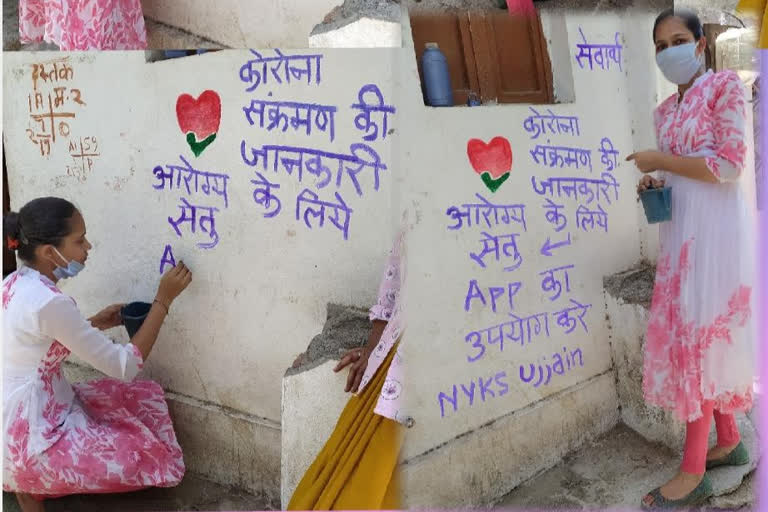 दस्तक
कोरोना
संक्रमण की
जानकारी
के लिये
आरोग्य
सेतु
A
सेवार्थ
कोरोना
संक्रमण की
जानकारी
के लिये
आरोग्य
सेतु ←
App का
उपयोग करे
NYKS Ujjain